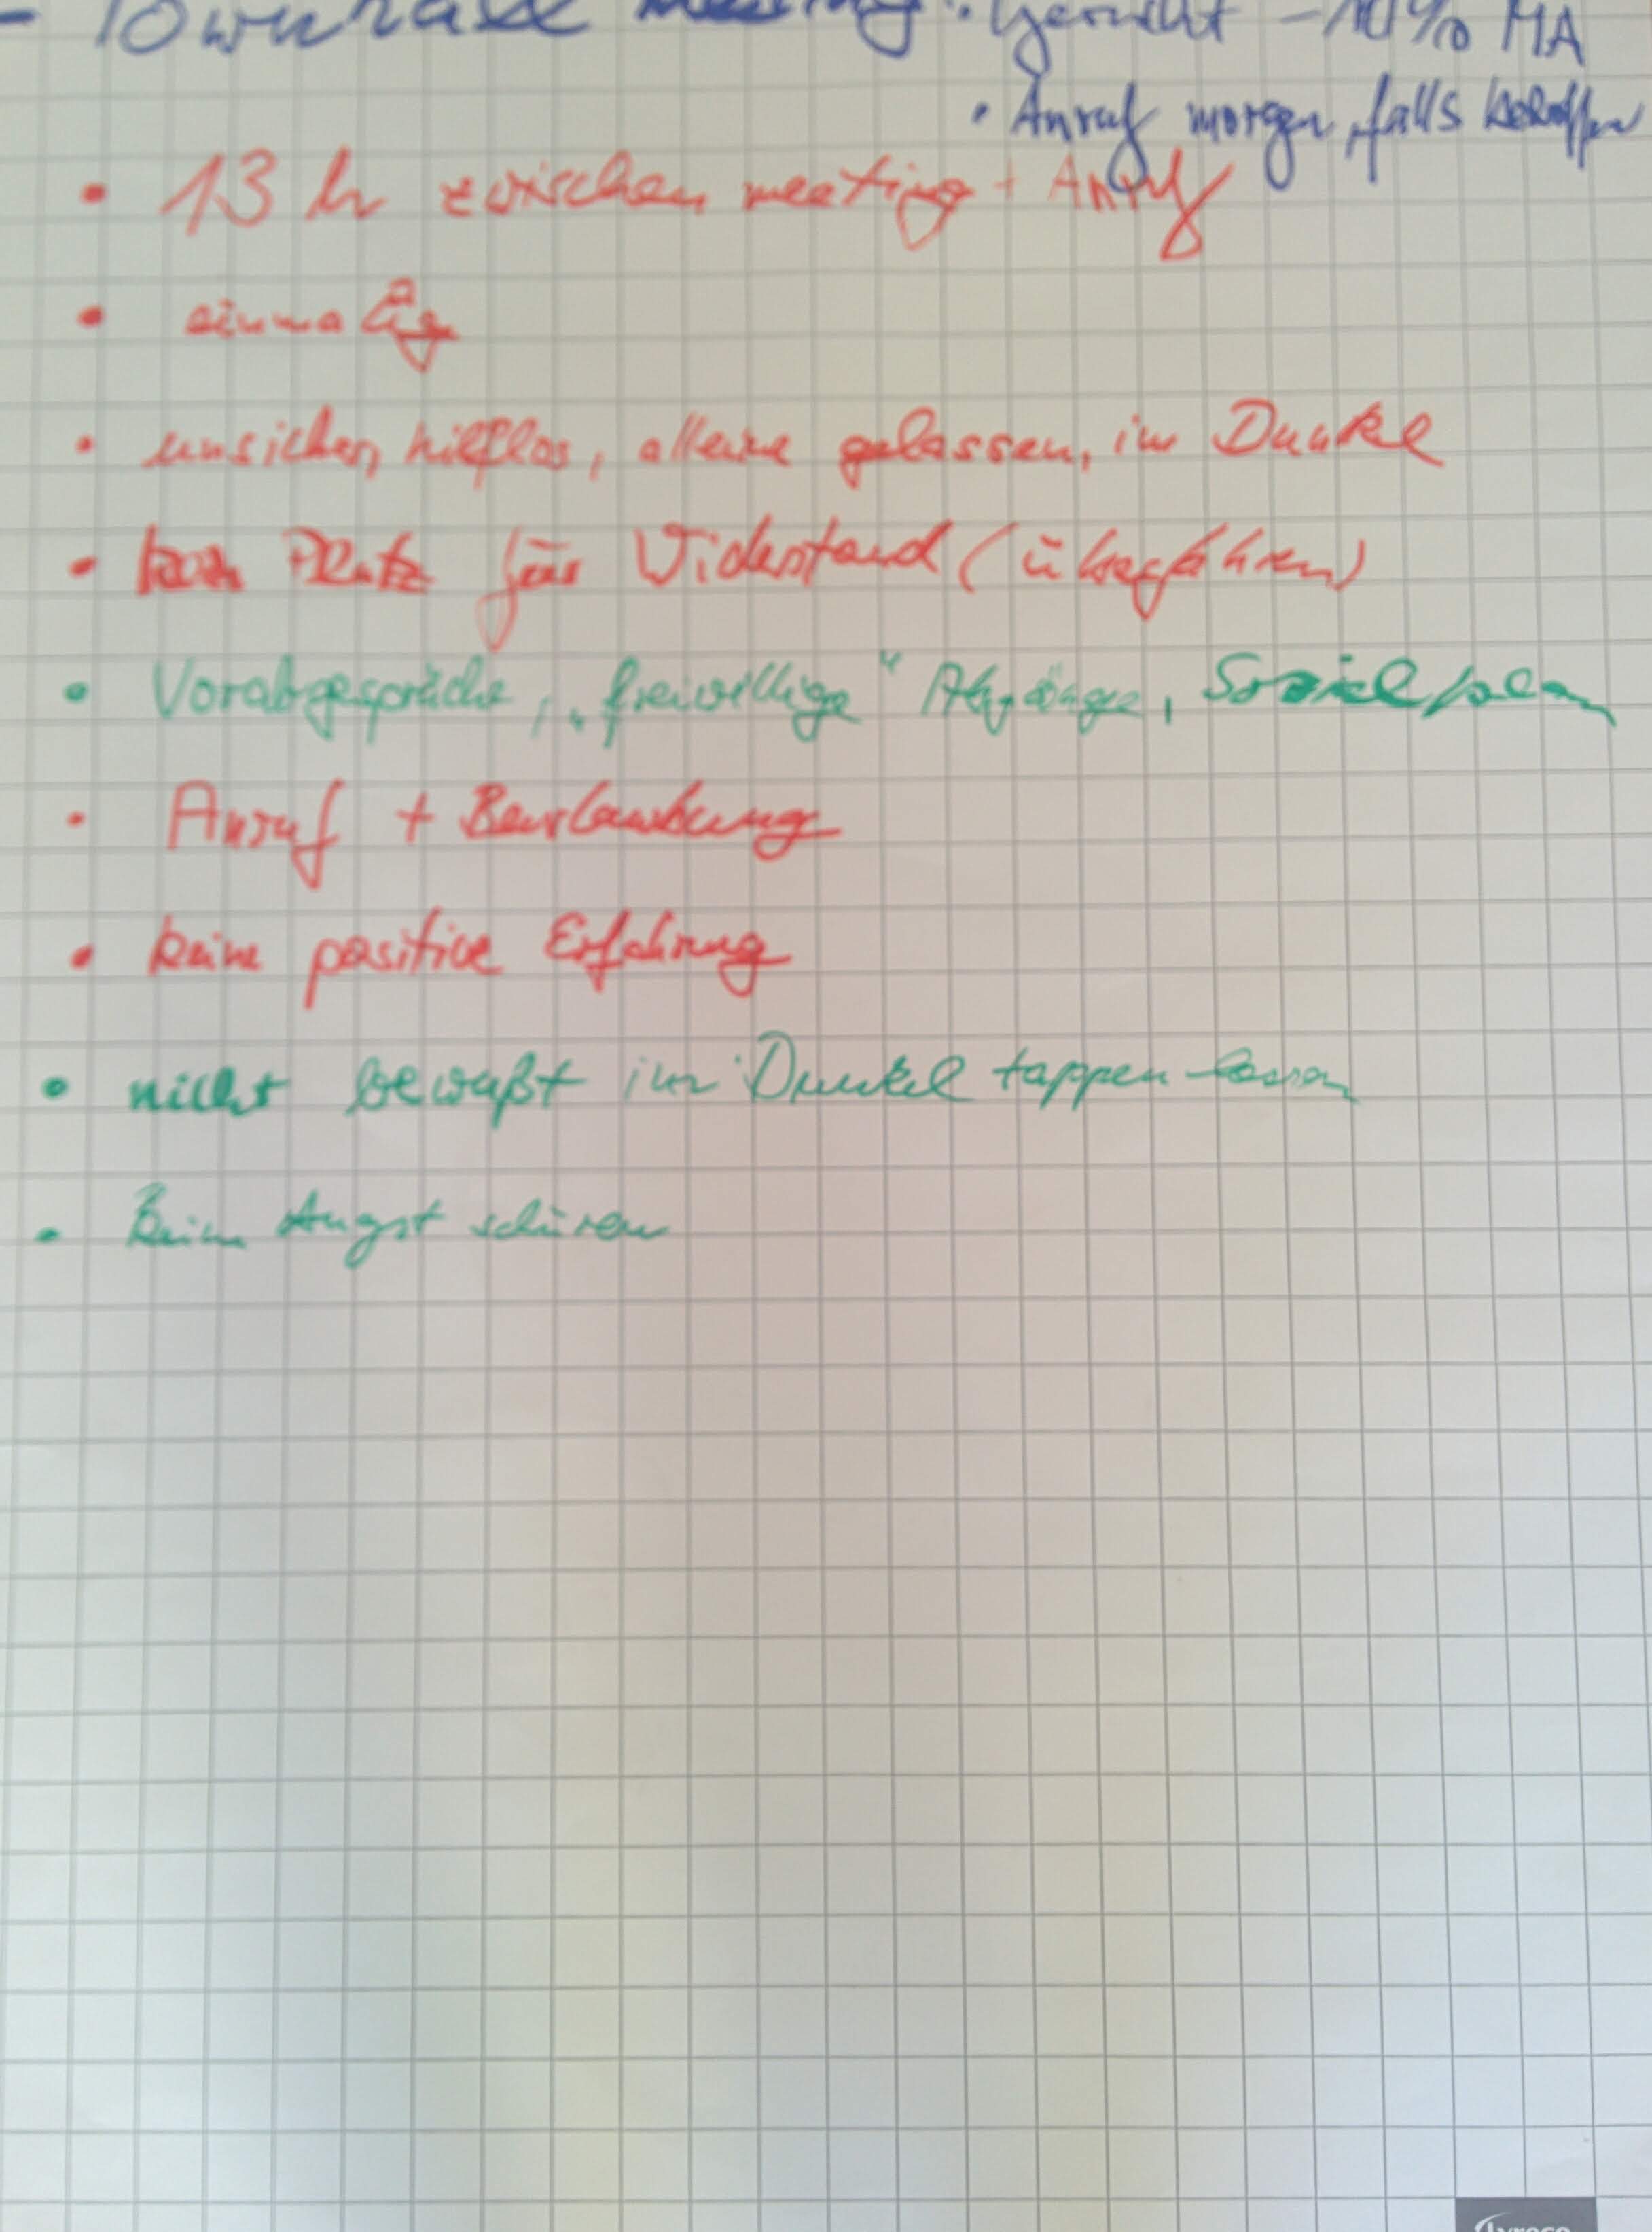 - Townhall meeting • Gerücht -10% MA
• Anruf morgen, falls betroffen
• 13 h zwischen meeting + Anruf
• einmalig
• unsicher, hilflos, alleine gelassen, im Dunkel
• kein Platz für Widerstand (überfahren)
• Vorabgespräche, „freiwillige" Abgänge, Sozialplan
• Anruf + Beurlaubung
• keine positive Erfahrung
• nicht bewußt im Dunkel tappen lassen
• keine Angst schüren